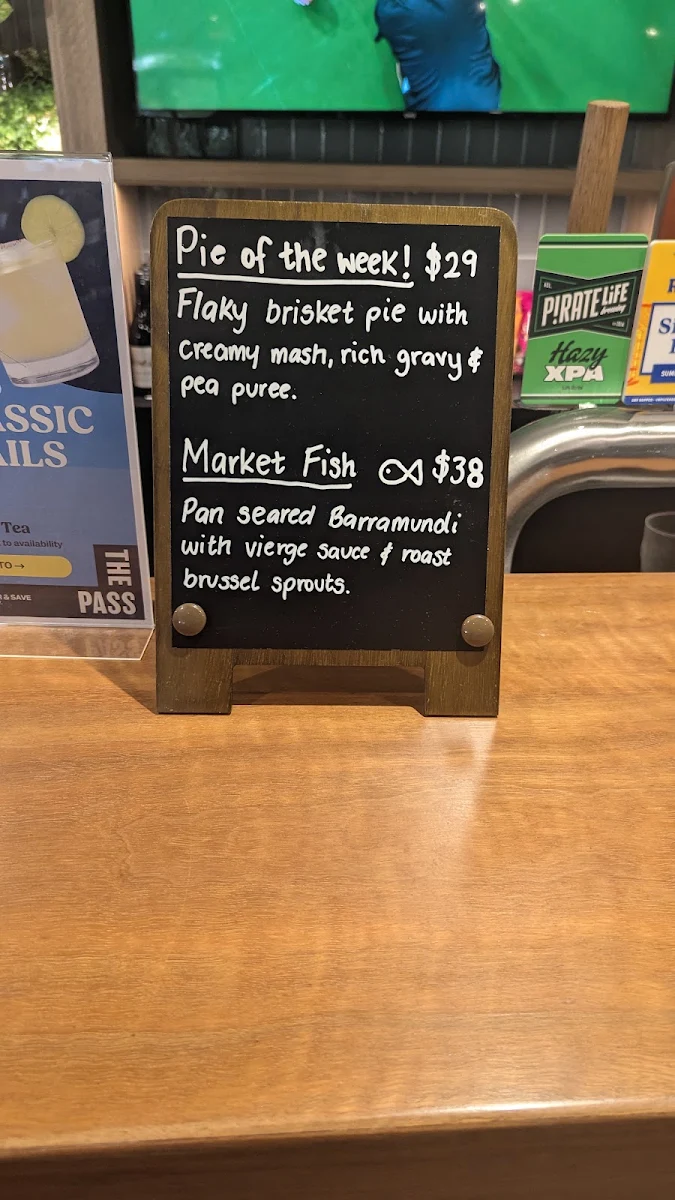 Pie of the week! $29
Flaky brisket pie with
creamy mash, rich gravy &
pea puree.
Market Fish $38
Pan seared Barramundi
with vierge sauce & roast
brussel sprouts.
ASSIC
AILS
Tea
to availability
TO →
& SAVE
THE
PASS
PIRATE LIFE
Hazy
XPA